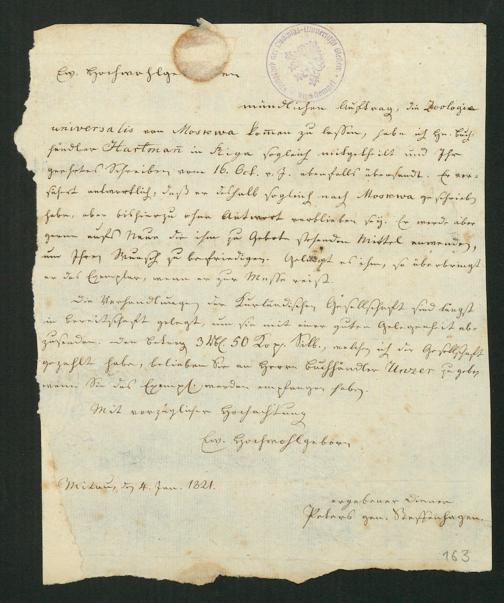 Ew. Hochwohlge en
mündlichen Auftrag, die Zoologia
universalis von Moskwa kommen zu lassen, habe ich Hn. Buch-
händler Hartmañ in Riga sogleich mitgetheilt und Ihr
geehrtes Schreiben vom 16. Oct. v. J. ebenfalls übersandt. Er ver-
sichert antwortlich, daß er deshalb sogleich nach Moskwa geschrieben
habe, aber bishierzu ohne Antwort verblieben sey. Er werde aber
gerne aufs Neue die ihm zu Gebote stehenden Mittel anwenden,
um Ihren Wunsch zu befriedigen. Gelingt es ihm, so überbringt
er das Exemplar, wenn er zur Messe reist.
Die Verhandlungen der Kurländischen Gesellschaft sind längst
in Bereitschaft gelegt, um sie mit einer guten Gelegenheit abz
zusenden. Den Betrag 3 Rbl 50 Kop. Silb., welchen ich der Gesellschaft
gezahlt habe, belieben Sie an Herrn Buchhändler Unzer zu geben
wenn Sie das Exempl. werden empfangen haben.
Mit vorzüglicher Hochachtung
Ew. Hochwohlgeborn
Mitau, d. 4. Jan. 1821.
ergebener Diener
Peters gen. Steffenhagen.
163